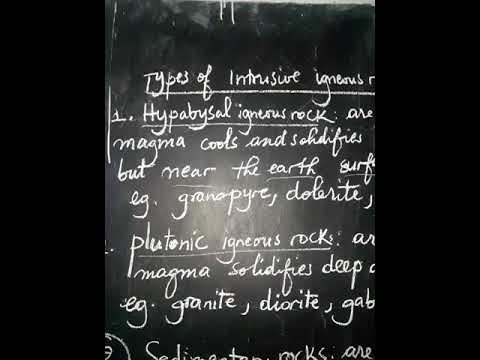 Types of Intrusive igneous r
1. Hypabysal igneous rock: are
magma cools and solidifies
but near the earth surf
eg. granopyre, dolerite,
plutonic igneous rocks: ar
magma solidifies deep
eg. granite, diorite, gab
Sedimentary rocks: are